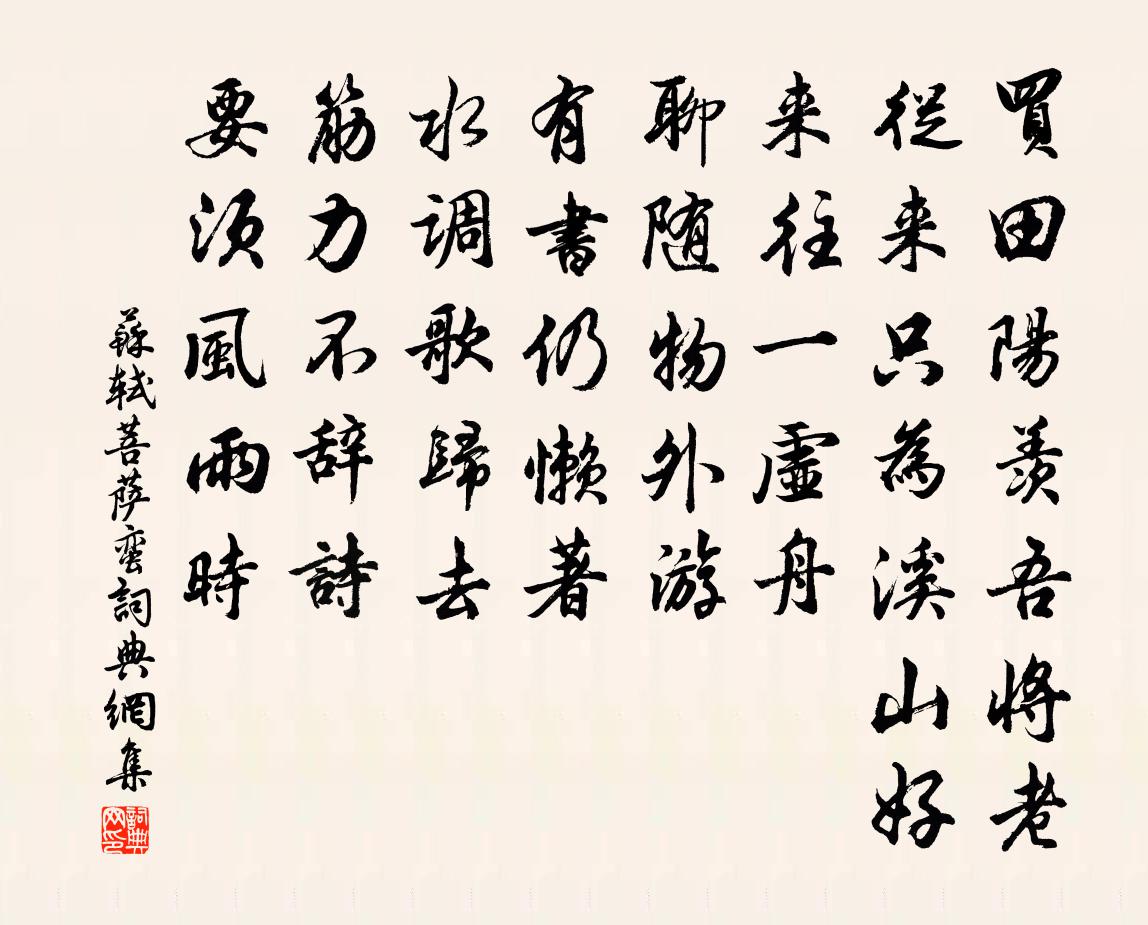 買田陽羨吾將老
從来只為溪山好
来往一虛舟
聊随物外游
有書仍懶著
水調歌歸去
筋力不辞詩
要須風雨時
蘇軾菩薩蠻詞典網集
詞典網印